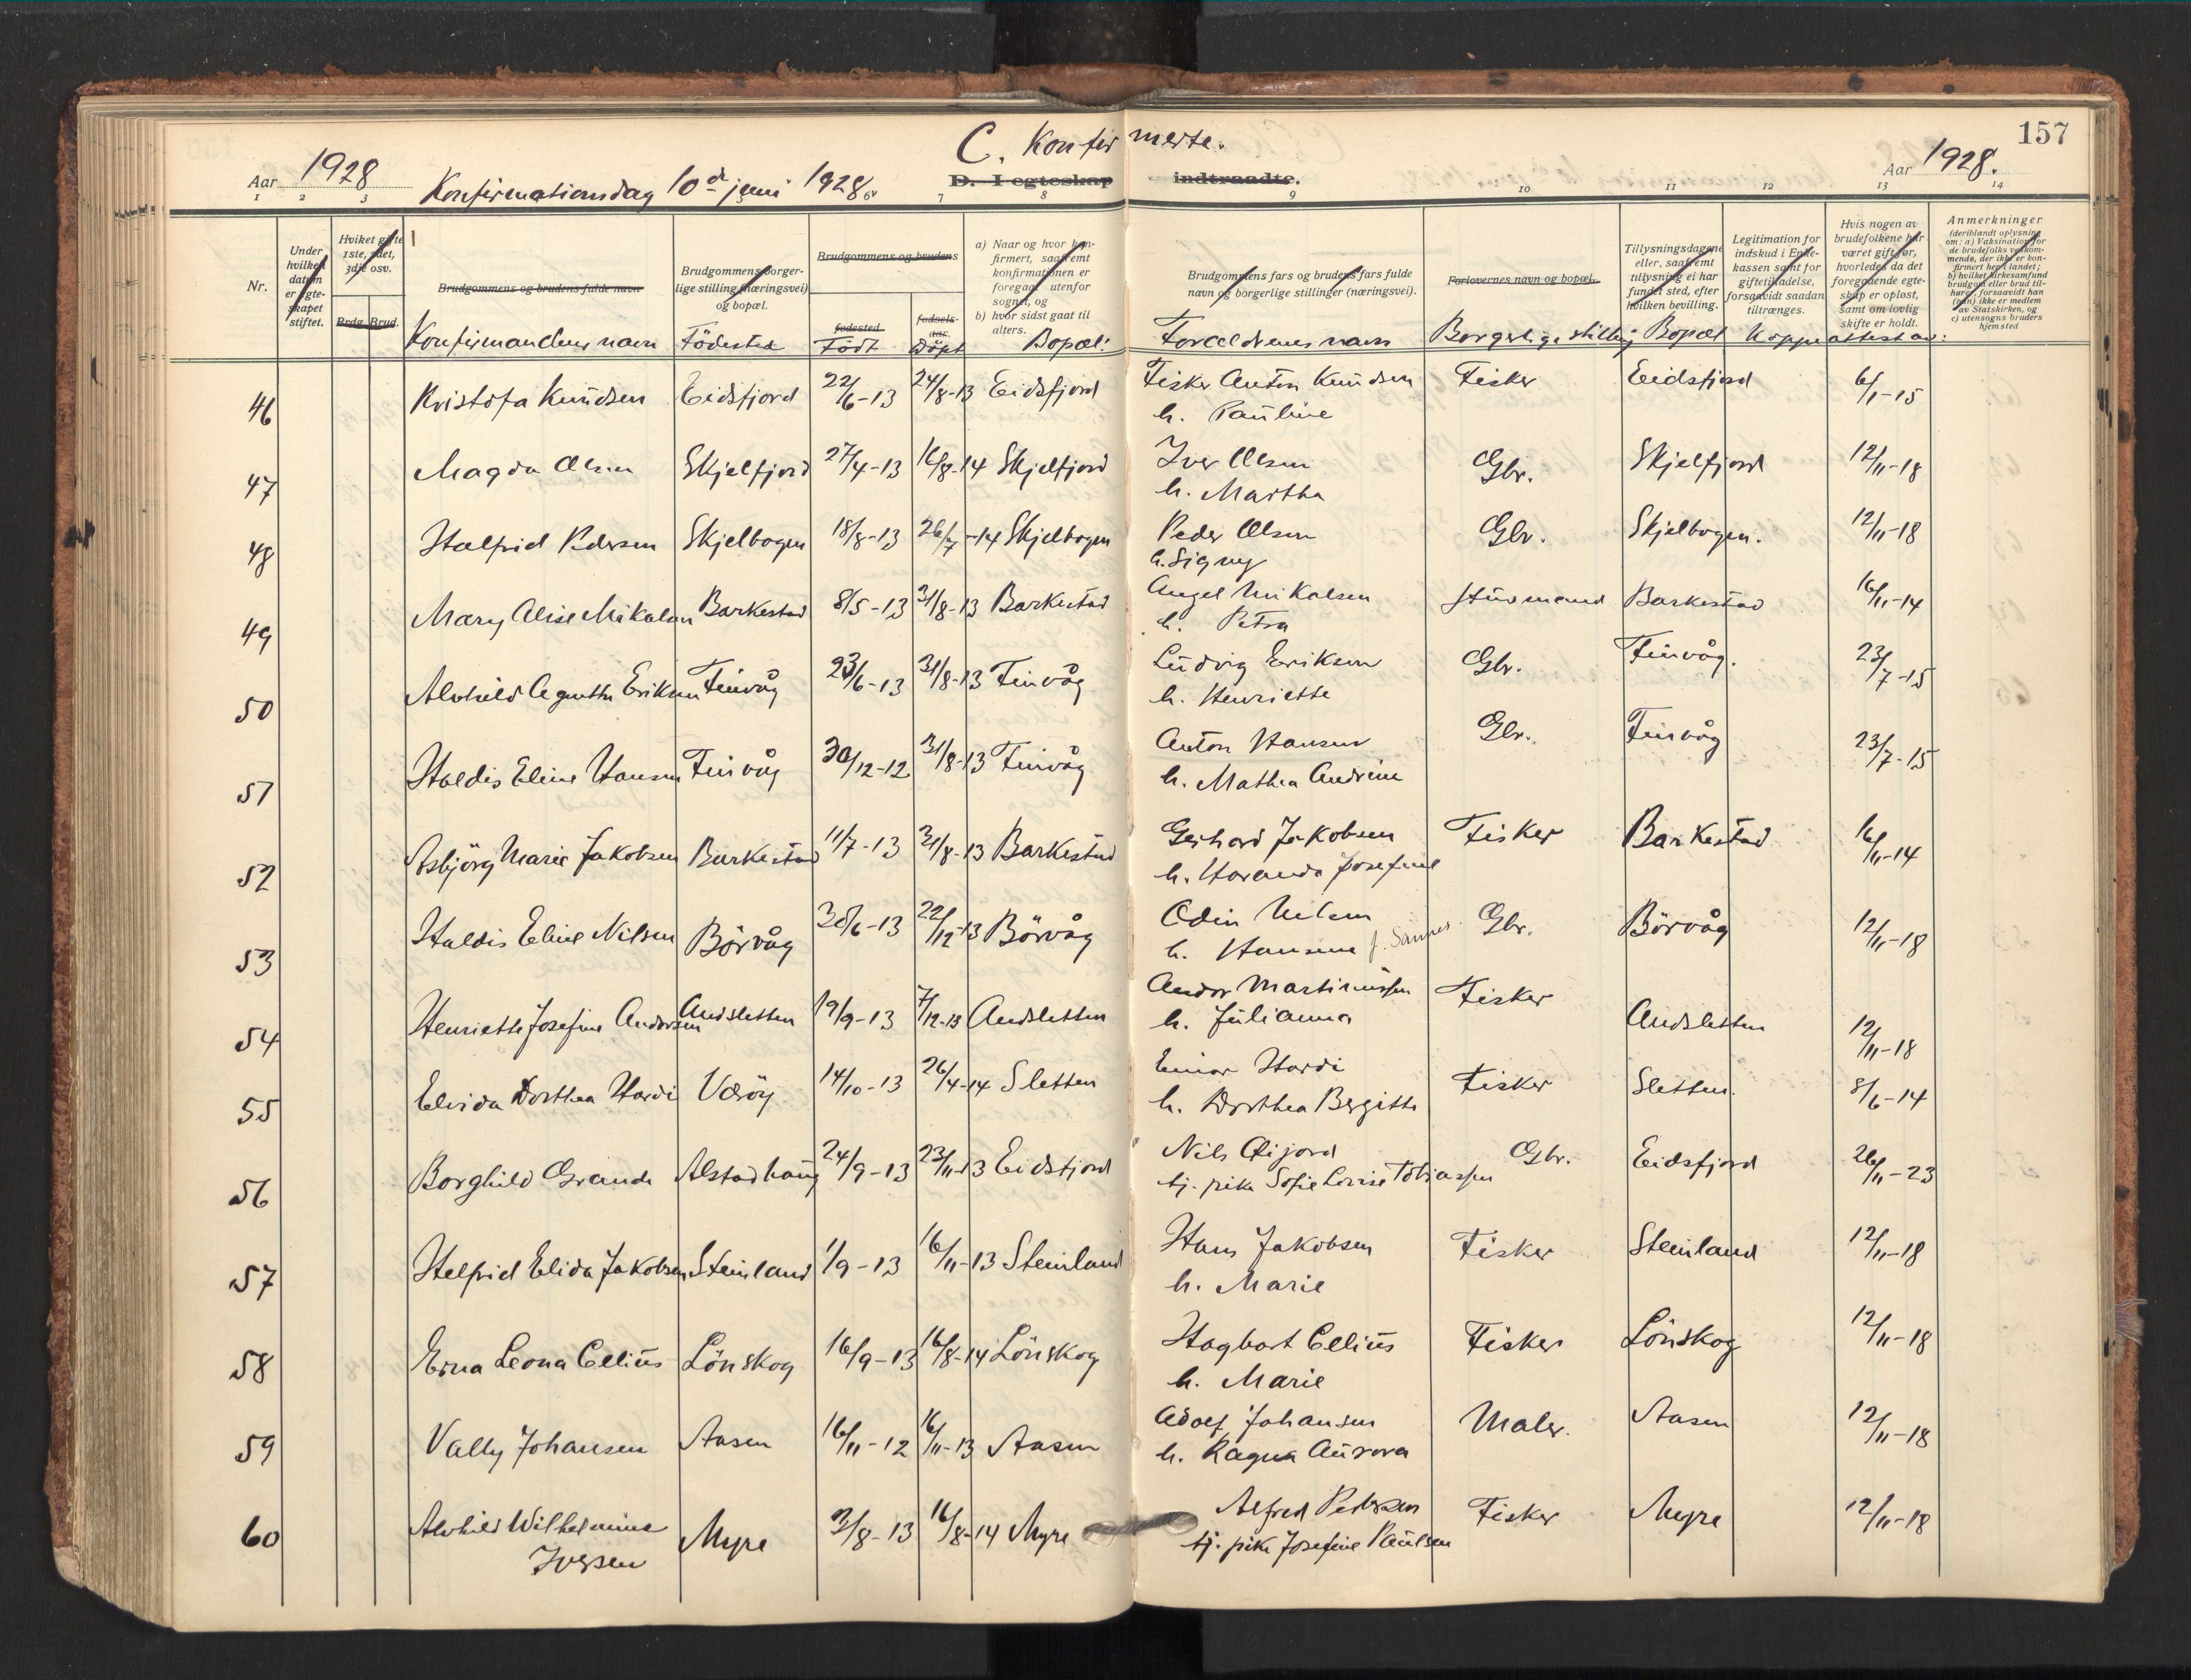 157
C. Konfirmerte.
Aar 1928 Konfirmationsdag 10de juni 1928. D. I egteskap indtraadte. Aar 1928.
1 2 3 7 8 9 10 11 12 13 14
Nr.
Under hvilken datum er egteskapet stiftet.
Hviket gifte 1ste, 2det, 3dje osv.
Brdg. Brud.
Brudgommens og brudens fulde navn
Brudgommens borgerlige stilling (næringsvei) og bopæl.
Brudgommens og brudens
fødested. fødselsaar.
a) Naar og hvor konfirmert, saafremt konfirmationen er foregaat utenfor sognet, og
b) hvor sidst gaat til alters.
Brudgommens fars og brudens fars fulde navn og borgerlige stillinger (næringsvei).
Forlovernes navn og bopæl.
Tillysningsdagene eller, saafremt tillysning ei har fundet sted, efter hvilken bevilling.
Legitimation for indskud i Enkekassen samt for giftetilladelse, forsaavidt saadan tiltrænges.
Hvis nogen av brudefolkene har været gift før, hvorledes da det foregaaende egteskap er opløst, samt om lovlig skifte er holdt.
Anmerkninger
(deriblandt oplysning om: a) Vaksination for de brudefolks vedkommende, der ikke er konfirmert her i landet; b) hvilket kirkesamfund brudgom eller brud tilhører, forsaavidt han (hun) ikke er medlem av Statskirken, og c) utensogns bruders hjemsted
Konfirmandens navn Födested Födt Döpt Bopæl: Foreldrenes navn Borgerlige stilling Bopæl Koppeattest av:
46 Kristofa Knudsen Eidsfjord 22/6-13 24/8-13 Eidsfjord Fisker Anton Knudsen Fisker Eidsfjord 6/1-15
h. Pauline
47 Magda Olsen Skjelfjord 27/4-13 16/8-14 Skjelfjord Iver Olsen Gbr. Skjelfjord 12/11-18
h. Martha
48 Halfrid Pedersen Skjelbogen 18/8-13 26/7-14 Skjelbogen Peder Olsen Gbr. Skjelbogen. 12/11-18
h. Signy
49 Mary Alise Mikalsen Barkestad 8/5-13 31/8-13 Barkestad Angel Mikalsen Stuvmand Barkestad 16/11-14
h. Petra
50 Alvhild Agnethe Eriksen Finvåg 23/6-13 31/8-13 Finvåg Ludvig Eriksen Gbr. Finvåg. 23/7-15
h. Henriette
51 Haldis Eline Hansen Finvåg 30/12-12 31/8-13 Finvåg Anton Hansen Gbr. Finvåg 23/7-15
h. Mathea Andrine
52 Asbjörg Marie Jakobsen Barkestad 11/7-13 31/8-13 Barkestad Gerhard Jakobsen Fisker Barkestad 16/11-14
h. Haranda Josefine
53 Haldis Eline Nilsen Börvåg 30/6-13 22/12-13 Börvåg Odin Nilsen Gbr. Börvåg 12/11-18
h. Hansine f. Sannes.
54 Henriette Josefine Andorsen Andsletten 19/9-13 7/12-13 Andsletten Andor Martinussen Fisker Andsletten 12/11-18
h. Julianna
55 Elvida Dorthea Hardi Værøy 14/10-13 26/4-14 Sletten Einar Hardi Fisker Sletten. 8/6-14
h. Dorthea Bergitte
56 Borghild Grande Alstadhaug 24/9-13 23/11-13 Eidsfjord Nils Gijord Gbr. Eidsfjord 26/11-23
tj. pike Sofie Lovise Tobiassen
57 Helfrid Elida Jakobsen Steinland 1/9-13 16/11-13 Steinland Hans Jakobsen Fisker Steinland 12/11-18
h. Marie
58 Erna Leona Celius Lönskog 16/9-13 16/8-14 Lönskog Hagbart Celius Fisker Lönskog 12/11-18
h. Marie
59 Vally Johansen Aasen 16/11-12 16/11-13 Aasen Adolf Johansen Maler. Aasen 12/11-18
h. Ragna Aurora
60 Alvhild Wilhelmine Myre 3/8-13 16/8-14 Myre Alfred Pedersen Fisker Myre 12/11-18
Iversen tj. pike Josefine Paulsen